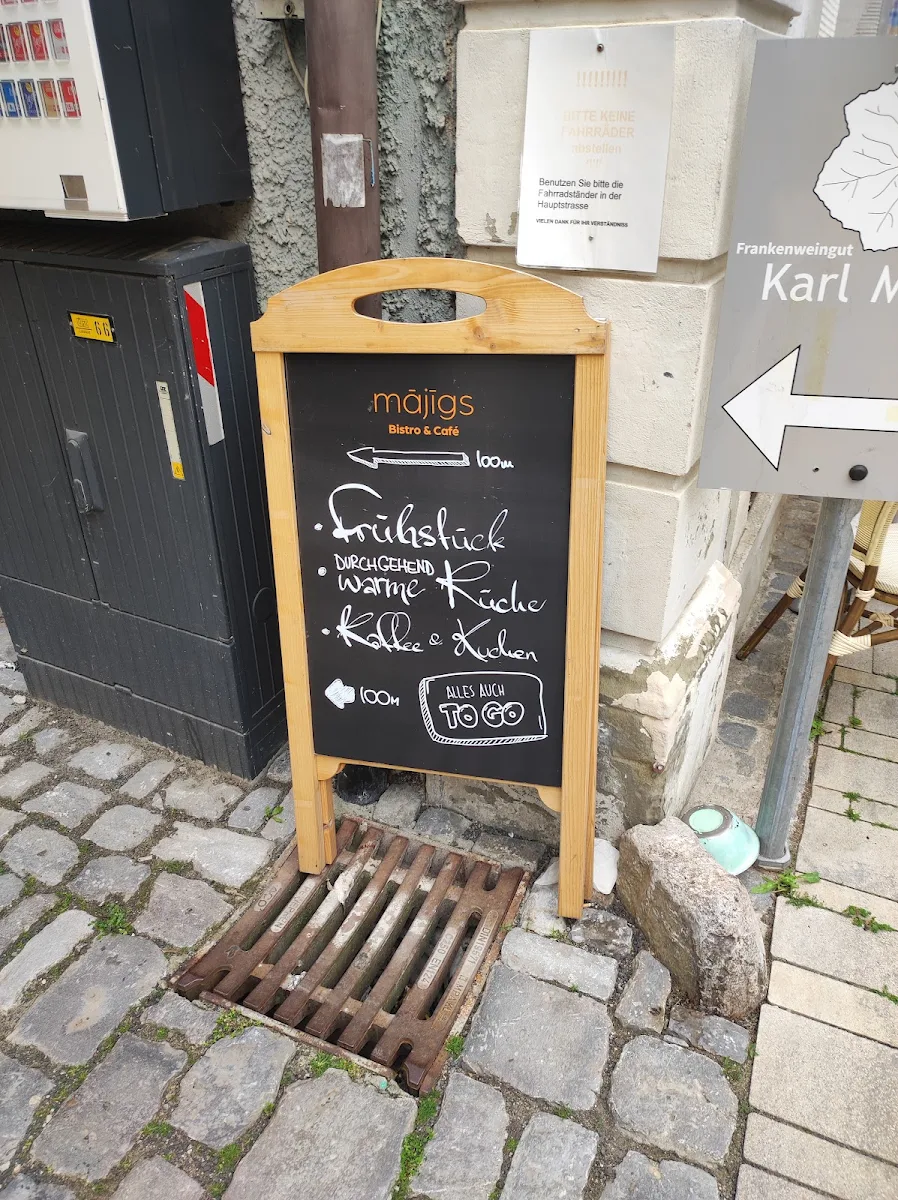 BITTE KEINE
FAHRRÄDER
abstellen
!!!
Benutzen Sie bitte die
Fahrradständer in der
Hauptstrasse
VIELEN DANK FÜR IHR VERSTÄNDNISS
Frankenweingut
Karl M
66
mājīgs
Bistro & Café
100m
• Frühstück
• DURCHGEHEND
warme Küche
• Kaffee & Kuchen
100M
ALLES AUCH
TO GO